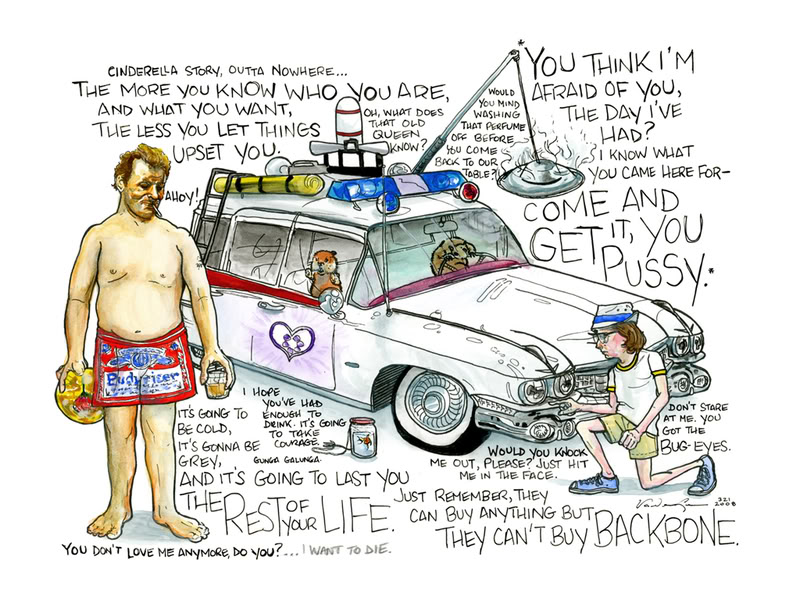 CINDERELLA STORY, OUTTA NOWHERE...
THE MORE YOU KNOW WHO YOU ARE,
AND WHAT YOU WANT,
THE LESS YOU LET THINGS
UPSET YOU.
OH, WHAT DOES
THAT OLD
QUEEN
KNOW?
WOULD
YOU MIND
WASHING
THAT PERFUME
OFF BEFORE
YOU COME
BACK TO OUR
TABLE?!
*YOU THINK I'M
AFRAID OF YOU,
THE DAY I'VE
HAD?
I KNOW WHAT
YOU CAME HERE FOR-
COME AND
GET IT, YOU
PUSSY.*
AHOY!
Budweiser
I HOPE
YOU'VE HAD
ENOUGH TO
DRINK. IT'S GOING
TO TAKE
COURAGE.
GUNGA GALUNGA.
IT'S GOING TO
BE COLD,
IT'S GONNA BE
GREY,
AND IT'S GOING TO LAST YOU
THE REST OF YOUR LIFE.
YOU DON'T LOVE ME ANYMORE, DO YOU?... I WANT TO DIE.
WOULD YOU KNOCK
ME OUT, PLEASE? JUST HIT
ME IN THE FACE.
DON'T STARE
AT ME. YOU
GOT THE
BUG-EYES.
JUST REMEMBER, THEY
CAN BUY ANYTHING BUT
THEY CAN'T BUY BACKBONE.
321
2008